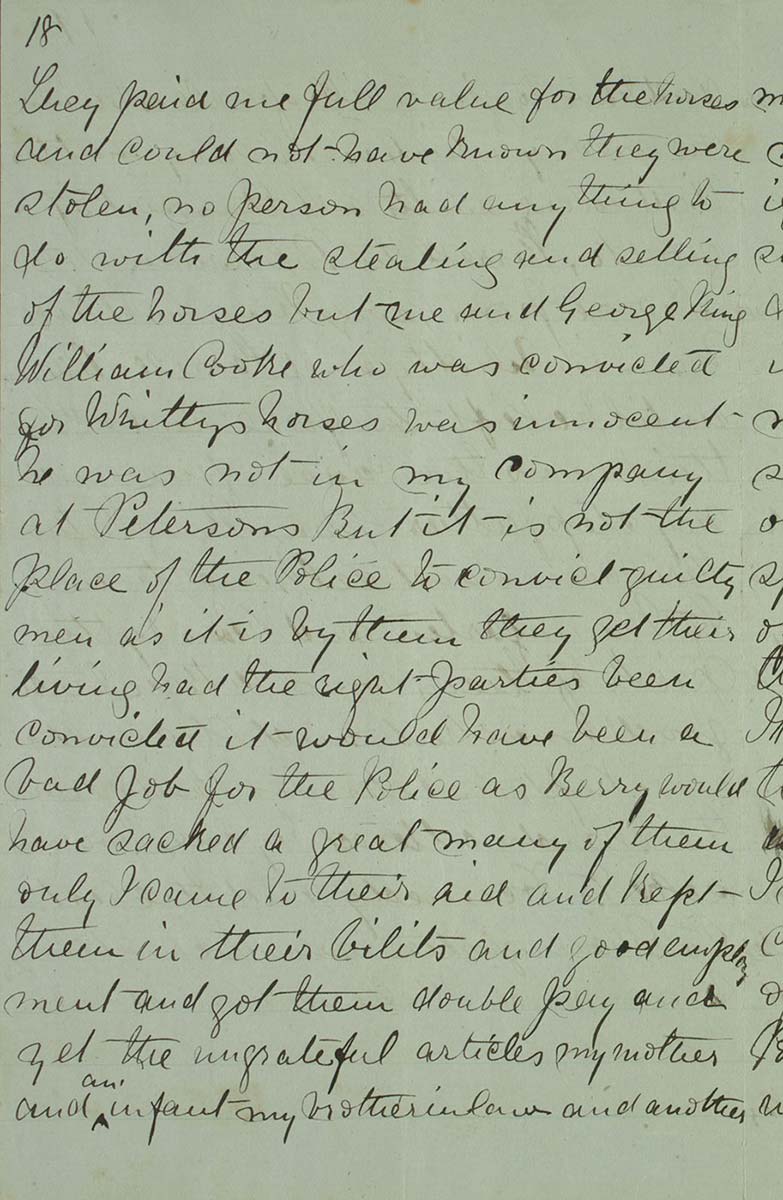 18
They paid me full value for the horses
and could not have known they were
stolen, no person had anything to
do with the stealing and selling
of the horses but me and George King
William Cooke who was convicted
for Whittys horses was innocent
he was not in my company
at Petersons But it is not the
place of the Police to convict guilty
men as it is by them they get their
living had the right parties been
convicted it would have been a
bad Job for the Police as Berry would
have sacked a great many of them
only I came to their aid and kept
them in their bilits and good employ
ment and got them double pay and
yet the ungrateful articles my mother
and an infant my brotherinlaw and another